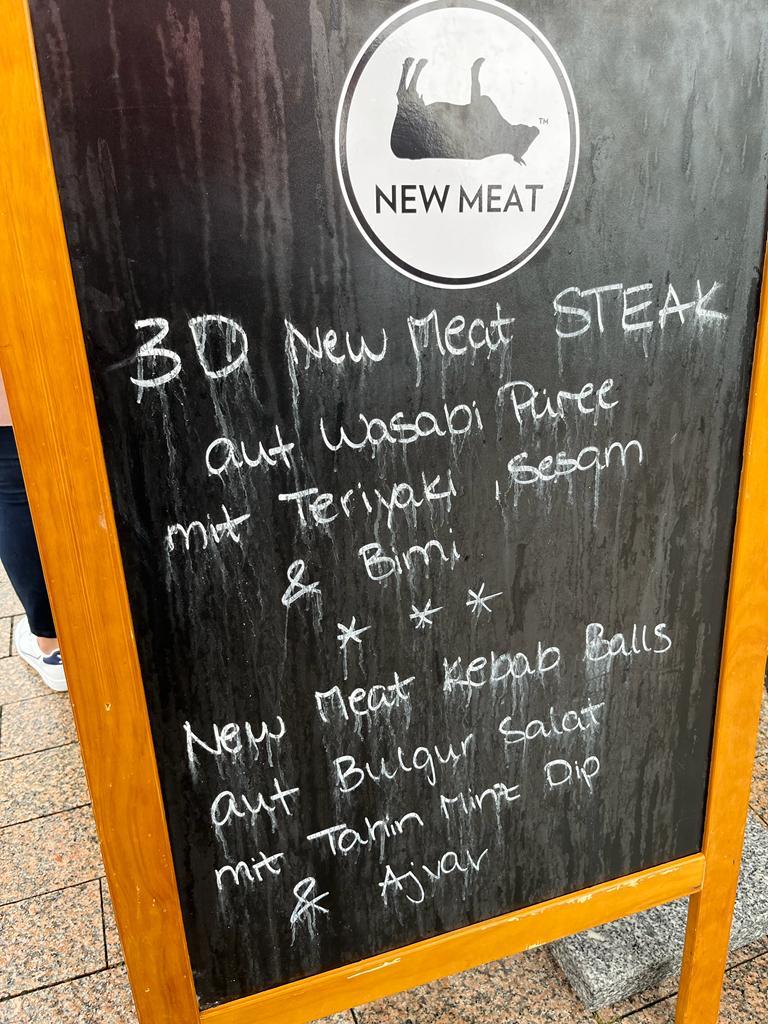 TM
NEW MEAT
3D New Meat STEAK
auf Wasabi Püree
mit Teriyaki, Sesam
& Bimi
* * *
New Meat Kebab Balls
auf Bulgur Salat
mit Tahin Minz Dip
& Ajvar